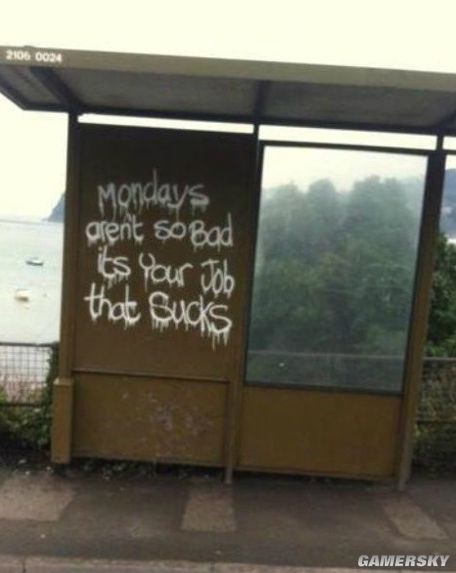 2106 0024
Mondays
aren't so Bad
its Your Job
that Sucks
GAMERSKY